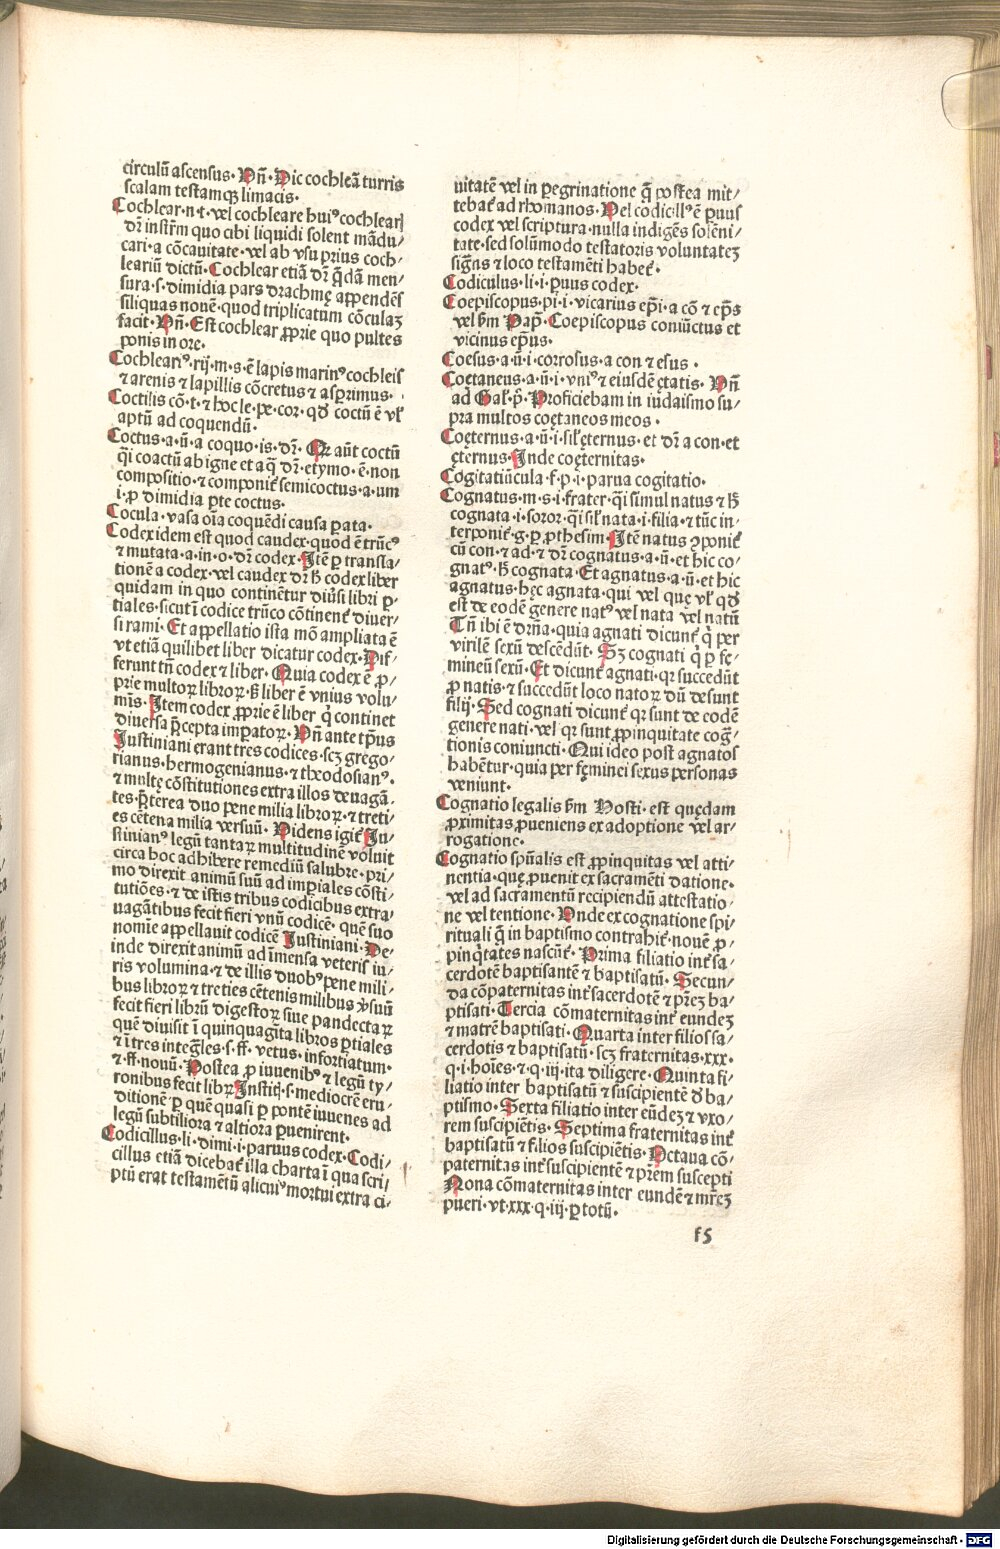 circulū ascensus. Vn̄. Dic cochleā turris
scalam testamq; limacis.
Cochlear.n.t. vel cochleare huiꝰ cochlearꝭ
dr̄ instrm̄ quo cibi liquidi solent mādu/
cari.a cōcauitate.vel ab vsu prius coch/
leariū dictū. Cochlear etiā dr̄ q̄dā men/
sura.s.dimidia pars drachmę appendēs
siliquas nouē.quod triplicatum cōculaȝ
facit. Vn̄. Est cochlear ꝓprie quo pultes
ponis in ore.
Cochleariꝰ.rij.m.s.ē lapis marinꝰ cochleis
⁊ arenis ⁊ lapillis cōcretus ⁊ asperrimus.
Coctilis cō.t.⁊ hoc le.pe.cor.qd̄ coctū ē vl̓
aptū ad coquendū.
Coctus.a.ū.a coquo.is.dr̄. Qr aūt coctū
q̄i coactū ab igne et aq̄ dr̄.etymo.ē.non
compositio.⁊ componit̄ semicoctus.a.um
i.ꝓ dimidia ꝑte coctus.
Cocula.vasa oīa coquēdi causa ꝑata.
Codex idem est quod caudex.quod ē trūcꝰ
⁊ mutata.a.in.o.dr̄ codex. Itē ꝑ transla/
tionē a codex.vel caudex dr̄ h̄ codex liber
quidam in quo continētur diuersi libri ꝑ/
tiales.sicut ī codice trūco cōtinent̄ diuer/
si rami. Et appellatio ista mō ampliata ē
vt etiā quilibet liber dicatur codex. Dif/
ferunt tn̄ codex ⁊ liber. Quia codex ē ꝓ/
prie multoꝝ libroꝝ.ß liber ē vnius volu/
mīs. Item codex ꝓprie ē liber q̇ continet
diuersa p̄cepta imꝑatoꝝ. Vn̄ ante tp̄us
Justiniani erant tres codices.scȝ grego/
rianus.hermogenianus.⁊ theodosianꝰ.
⁊ multę cōstitutiones extra illos deuagā.
tes.p̄terea duo pene milia libroꝝ.⁊ treti/
es cētena milia versuū. Videns igit̄ Ju/
stinianꝰ legū tantaꝝ multitudinē voluit
circa hoc adhibere remediū salubre.pri/
mo direxit animū suū ad imꝑiales cōsti/
tutiōes.⁊ de istis tribus codicibus extra/
uagātibus fecit fieri vnū codicē.quē suo
nomīe appellauit codicē Justiniani. De/
inde direxit animū ad īmensa veteris iu/
ris volumina.⁊ de illis duobꝰ pene mili/
bus libroꝝ ⁊ treties cētenis milibus ꝟsuū
fecit fieri librū digestoꝝ siue pandectaꝝ
quē diuisit ī quinquagīta libros ꝑtiales
⁊ ī tres integrales.s.ff.vetus.infortiatum.
⁊ ff.nouū. Postea ꝓ iuuenibꝰ ⁊ legū ty/
ronibus fecit libꝝ Justiꝭ.s.mediocrē eru/
ditionē ꝑ quē quasi ꝑ pontē iuuenes ad
legū subtiliora ⁊ altiora ꝑuenirent.
Codicillus.li.dimi.i.paruus codex. Codi/
cillus etiā dicebat̄ illa charta ī qua scri/
ptū erat testamētū alicuiꝰ mortui extra ci/
uitatē vel in ꝑegrinatione q̄ postea mit/
tebat̄ ad rhomanos. Vel codicillꝰ ē ꝑuus
codex vel scriptura.nulla indigēs solēni/
tate.sed solūmodo testatoris voluntateȝ
signās ⁊ loco testamēti habet̄.
Codiculus.li.i.ꝑuus codex.
Coepiscopus.pi.i.vicarius ep̄i.a cō ⁊ ep̄s
vel ẜm Pap̄. Coepiscopus coniūctus et
vicinus ep̄us.
Coesus.a.ū.i.corrosus.a con ⁊ esus.
Coetaneus.a.ū.i.vniꝰ ⁊ eiusdē ętatis. Vn̄
ad Gal̓.p̄. Proficiebam in iudaismo su/
pra multos coętaneos meos.
Coęternus.a.ū.i.sil̓ ęternus.et dr̄ a con.et
ęternus. Inde coęternitas.
Cogitatiūcula.f.p.i.parua cogitatio.
Cognatus.m.s.i.frater.q̄i simul natus ⁊ h̄
cognata.i.soror.q̄i sil̓ nata.i.filia.⁊ tūc in/
terponit̄.g.ꝑ ꝓthesim. Itē natus ꝯponit̄
cū con.⁊ ad.⁊ dr̄ cognatus.a.ū.et hic co/
gnatꝰ.h̄ cognata. Et agnatus.a.ū.et hic
agnatus.hęc agnata.qui vel quę vl̓ qd̄
est de eodē genere natꝰ vel nata vel natū
Tn̄ ibi ē drn̄a.quia agnati dicunt̄ q̇ per
virilē sexū descēdūt. Sȝ cognati q̇ ꝑ fe/
mineū sexū. Et dicunt̄ agnati.qr succedūt
ꝓ natis.⁊ succedūt loco natoꝝ dū desunt
filij. Sed cognati dicunt̄ qr sunt de eodē
genere nati.vel qr sunt ꝓpinquitate coḡ/
tionis coniuncti. Qui ideo post agnatos
habētur.quia per fęminei sexus personas
veniunt.
Cognatio legalis ẜm Hosti. est quędam
ꝓximitas ꝓueniens ex adoptione vel ar/
rogatione.
Cognatio spūalis est ꝓpinquitas vel atti/
nentia.quę ꝓuenit ex sacramēti datione.
vel ad sacramentū recipiendū attestatio/
ne vel tentione. Vnde ex cognatione spi/
rituali q̄ in baptismo contrahit̄.nouē ꝓ/
pinq̇tates nascūt̄. Prima filiatio int̄ sa/
cerdotē baptisantē ⁊ baptisatū. Secun/
da cōpaternitas int̄ sacerdotē ⁊ pr̄eȝ ba/
ptisati. Tercia cōmaternitas int̄ eundeȝ
⁊ matrē baptisati. Quarta inter filios sa/
cerdotis ⁊ baptisatū.scȝ fraternitas.xxx.
q.i.hoīes.⁊.q.iij.ita diligere. Quinta fi/
liatio inter baptisatū ⁊ suscipientē d̄ ba/
ptismo. Sexta filiatio inter eūdeȝ ⁊ vxo/
rem suscipiētis. Septima fraternitas int̄
baptisatū ⁊ filios suscipiētis. Octaua cō/
paternitas int̄ suscipientē ⁊ pr̄em suscepti
Nona cōmaternitas inter eundē ⁊ mr̄eȝ
pueri.vt.xxx.q.iij.ꝑ totū.
f5
Digitalisierung gefördert durch die Deutsche Forschungsgemeinschaft - DFG